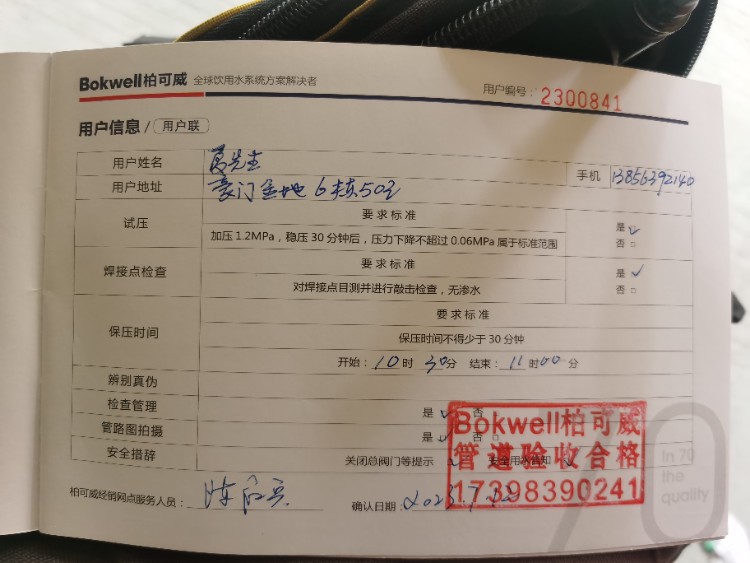 Bokwell柏可威 全球饮用水系统方案解决者
用户编号：2300841
用户信息 / 用户联
用户姓名 先生 手机 13856392140
用户地址 豪门金地 6栋502
试压 要求标准 是 ✓
加压 1.2MPa，稳压 30 分钟后，压力下降不超过 0.06MPa 属于标准范围 否 □
焊接点检查 要求标准 是 ✓
对焊接点目测并进行敲击检查，无渗水 否 □
保压时间 要求标准
保压时间不得少于 30 分钟
开始：10 时 30 分 结束：11 时 00 分
辨别真伪
检查管理 是 ✓ 否
管路图拍摄 是 ✓ 否 □
安全措辞 关闭总阀门等提示 ✓ 安全用水告知 ✓
Bokwell柏可威
管道验收合格
17398390241
柏可威经销网点服务人员： 陈 确认日期：2023.7.
70
In 70
the
quality